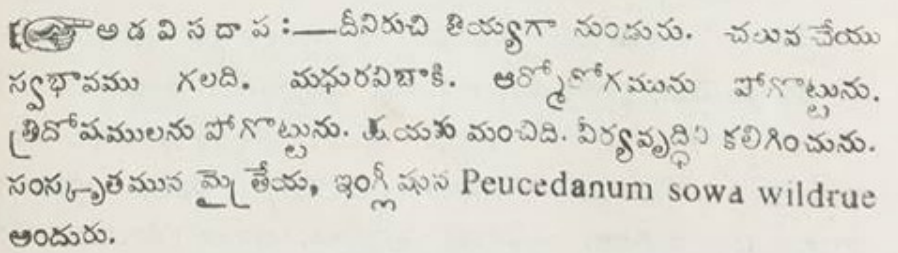 ☞ అ డ వి స దా ప :—దీనిరుచి తియ్యగా నుండును. చలువ చేయు
స్వభావము గలది. మధురవిపాకి. ఆర్శోరోగమును పోగొట్టును.
త్రిదోషములను పోగొట్టును. క్షయకు మంచిది. వీర్యవృద్ధిని కలిగించును.
సంస్కృతమున మై తేయ, ఇంగ్లీషున Peucedanum sowa wildrue
అందురు.